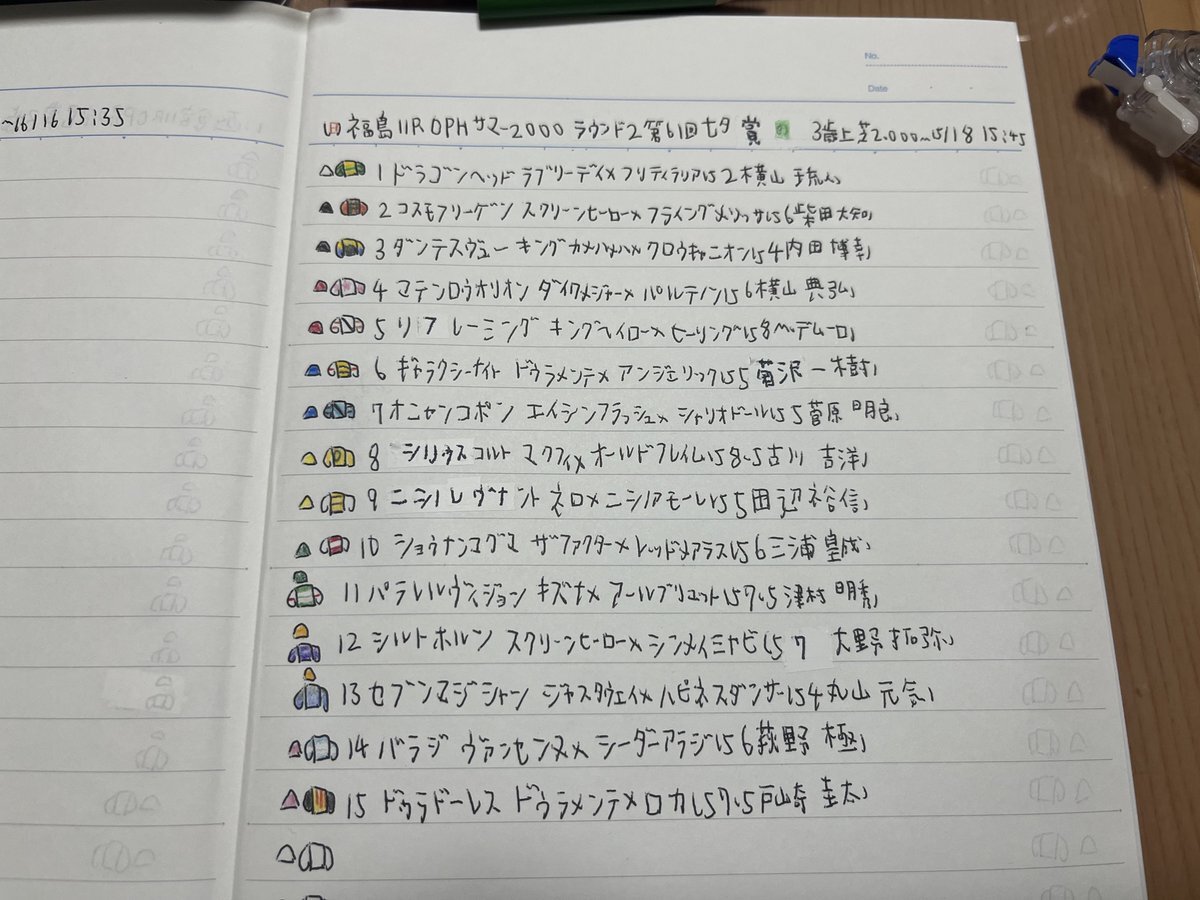 No.
Date
~16/16 15:35
(日)福島11R OPH サマー2000 ラウンド2 第61回七夕賞 3歳上芝2.000m 15/18 15:45
1 ドラゴンヘッド ラブリーデイ×フリティラリア152横山 琉人
2 コスモフリーゲン スクリーンヒーロー×フライングメリッサ156柴田大知
3 ダンテスヴュー キングカメハメハ×クロウキャニオン154内田 博幸
4 マテンロウオリオン ダイワメジャー×パルテノン156横山 典弘
5 リフレーミング キングヘイロー×ヒーリング158M.デムーロ
6 ギャラクシーナイト ドゥラメンテ×アンジェリック155菊沢 一樹
7 オニャンコポン エイシンフラッシュ×シャリオドール155菅原 明良
8 シリウスコルト マクフィ×オールドフレイム158.5古川 吉洋
9 ニシノレヴナント ネロ×ニシノアモーレ155田辺裕信
10 ショウナンマグマ ザファクター×レッドメアラス156三浦 皇成
11 パラレルヴィジョン キズナ×アールブリュット157.5津村 明秀
12 シルトホルン スクリーンヒーロー×シンメイミヤビ157 大野拓弥
13 セブンマジシャン ジャスタウェイ×ハピネスダンサー154丸山 元気
14 バラジ ヴァンセンヌ×シーダーアラジ156荻野 極
15 ドゥラドーレス ドゥラメンテ×ロカ157.5戸崎 圭太